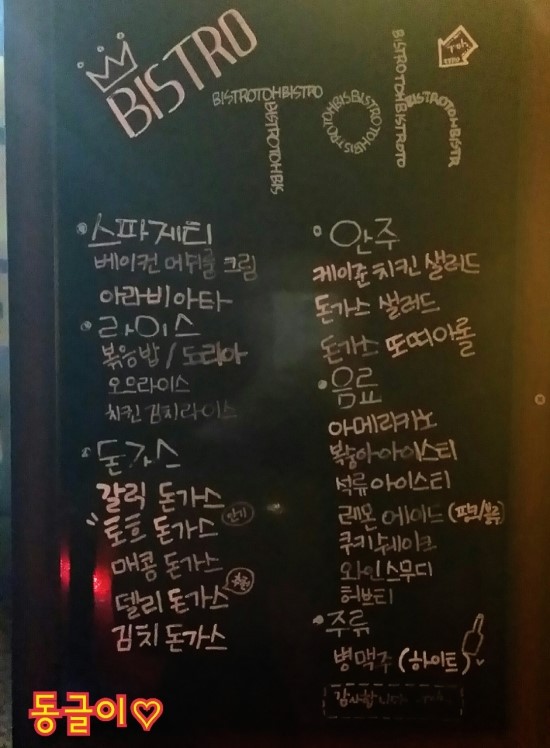 BISTRO
Toh
Toh
BISTROTOHBISTRO
• 스파게티
베이컨 머쉬룸 크림
아라비아타
• 라이스
볶음밥 / 도리아
오므라이스
치킨 김치라이스
• 돈가스
갈릭 돈가스
토흐 돈가스 인기
매콤 돈가스
델리 돈가스 추천
김치 돈가스
• 안주
케이준 치킨 샐러드
돈가스 샐러드
돈가스 또띠아롤
• 음료
아메리카노
복숭아아이스티
석류아이스티
레몬 에이드 (핑크/블루)
쿠키쉐이크
와인스무디
허브티
• 주류
병맥주 (하이트)
감사합니다
동글이♡